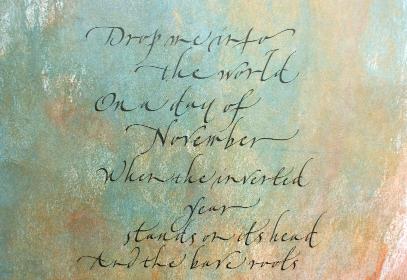 Drop me into
the world
On a day of
November
When the inverted
year
stands on its head
And the bare roots